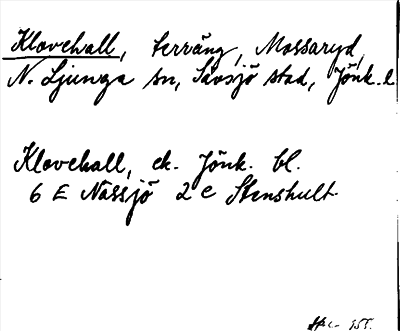 Klovehall, terräng, Mossaryd,
N. Ljunga sn, Sävsjö stad, Jönk. l.
Klovehall, ek. Jönk. bl.
6 E Nässjö 2 c Stenshult.